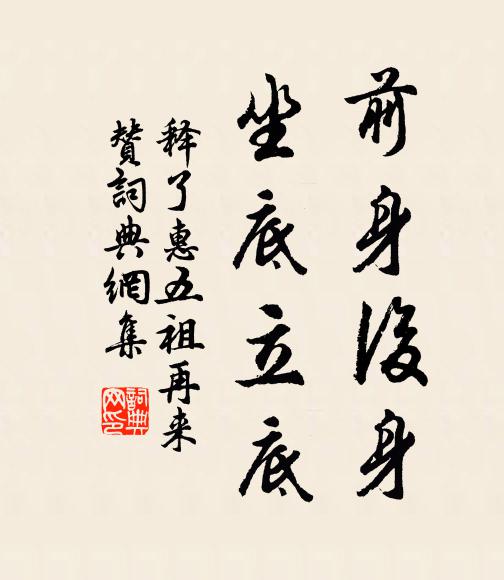 前身後身
坐底立底
释了惠五祖再来
赞詞典網集
詞典网印